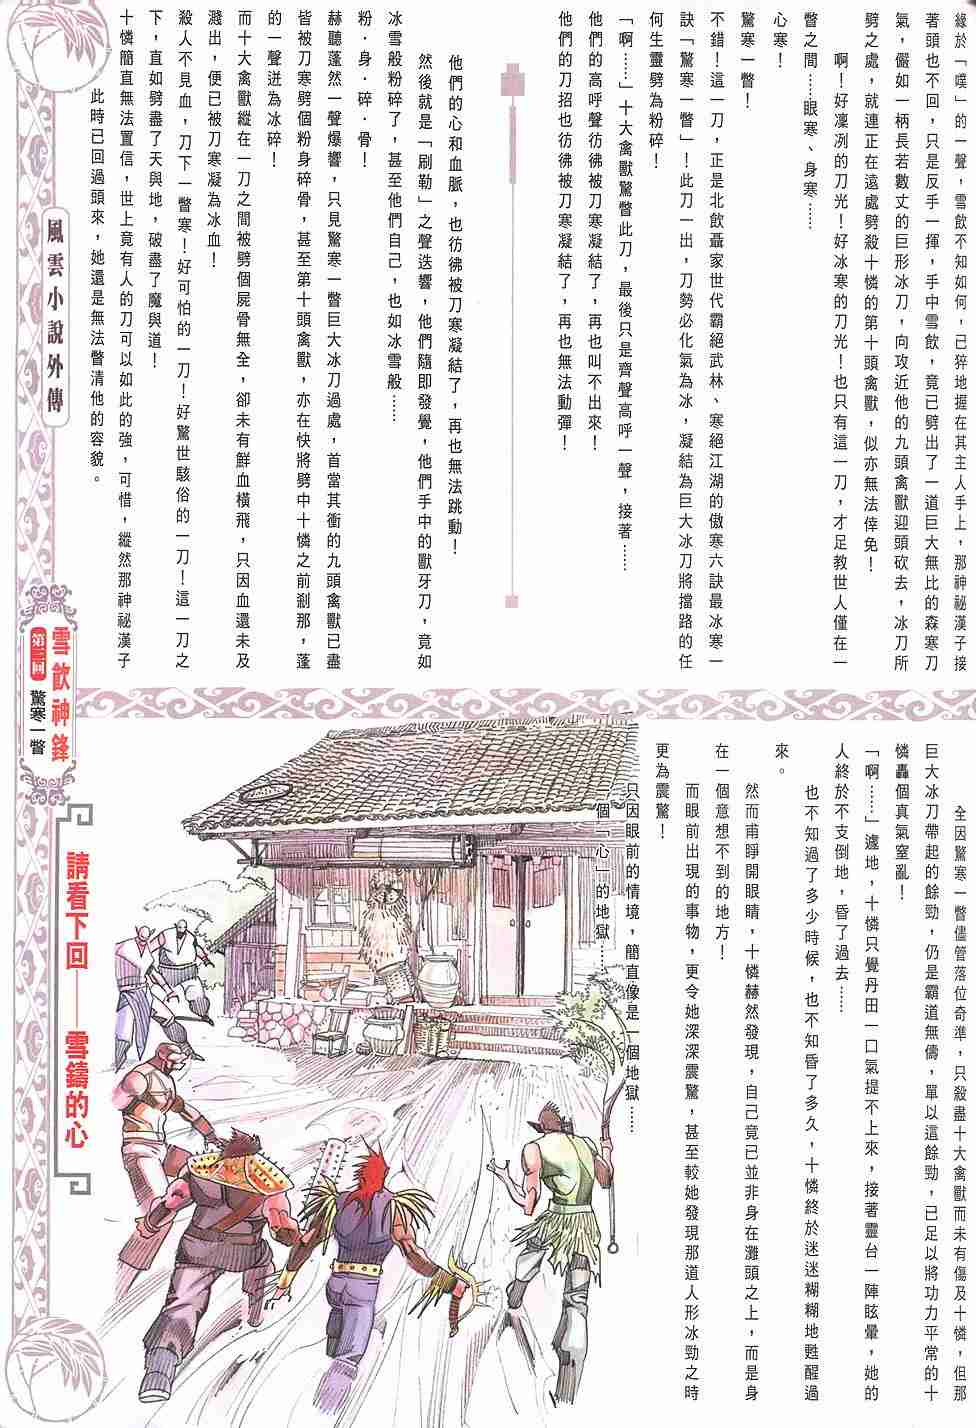 緣於「噗」的一聲，雪飲不知如何，已猝地握在其主人手上，那神祕漢子接
著頭也不回，只是反手一揮，手中雪飲，竟已劈出了一道巨大無比的森寒刀
氣，儼如一柄長若數丈的巨形冰刀，向攻近他的九頭禽獸迎頭砍去，冰刀所
劈之處，就連正在遠處劈殺十憐的第十頭禽獸，似亦無法倖免！
啊！好凜冽的刀光！好冰寒的刀光！也只有這一刀，才足教世人僅在一
瞥之間⋯⋯眼寒、身寒⋯⋯
心寒！
驚寒一瞥！
不錯！這一刀，正是北飲聶家世代霸絕武林、寒絕江湖的傲寒六訣最冰寒一
訣「驚寒一瞥」！此刀一出，刀勢必化氣為冰，凝結為巨大冰刀將擋路的任
何生靈劈為粉碎！
「啊⋯⋯」十大禽獸驚瞥此刀，最後只是齊聲高呼一聲，接著⋯⋯
他們的高呼聲彷彿被刀寒凝結了，再也叫不出來！
他們的刀招也彷彿被刀寒凝結了，再也無法動彈！
他們的心和血脈，也彷彿被刀寒凝結了，再也無法跳動！
然後就是「刷勒」之聲迭響，他們隨即發覺，他們手中的獸牙刀，竟如
冰雪般粉碎了，甚至他們自己，也如冰雪般⋯⋯
粉．身．碎．骨！
赫聽蓬然一聲爆響，只見驚寒一瞥巨大冰刀過處，首當其衝的九頭禽獸已盡
皆被刀寒劈個粉身碎骨，甚至第十頭禽獸，亦在快將劈中十憐之前剎那，蓬
的一聲迸為冰碎！
而十大禽獸縱在一刀之間被劈個屍骨無全，卻未有鮮血橫飛，只因血還未及
濺出，便已被刀寒凝為冰血！
殺人不見血，刀下一瞥寒！好可怕的一刀！好驚世駭俗的一刀！這一刀之
下，直如劈盡了天與地，破盡了魔與道！
十憐簡直無法置信，世上竟有人的刀可以如此的強，可惜，縱然那神祕漢子
此時已回過頭來，她還是無法瞥清他的容貌。
全因驚寒一瞥儘管落位奇準，只殺盡十大禽獸而未有傷及十憐，但那
巨大冰刀帶起的餘勁，仍是霸道無儔，單以這餘勁，已足以將功力平常的十
憐轟個真氣窒亂！
「啊⋯⋯」遽地，十憐只覺丹田一口氣提不上來，接著靈台一陣眩暈，她的
人終於不支倒地，昏了過去⋯⋯
也不知過了多少時候，也不知昏了多久，十憐終於迷迷糊糊地甦醒過
來。
然而甫睜開眼睛，十憐赫然發現，自己竟已並非身在灘頭之上，而是身
在一個意想不到的地方！
而眼前出現的事物，更令她深深震驚，甚至較她發現那道人形冰勁之時
更為震驚！
只因眼前的情境，簡直像是一個地獄⋯⋯
一個「心」的地獄⋯⋯
風雲小說外傳
雪飲神鋒
第三回
驚寒一瞥
請看下回
雪鑄的心